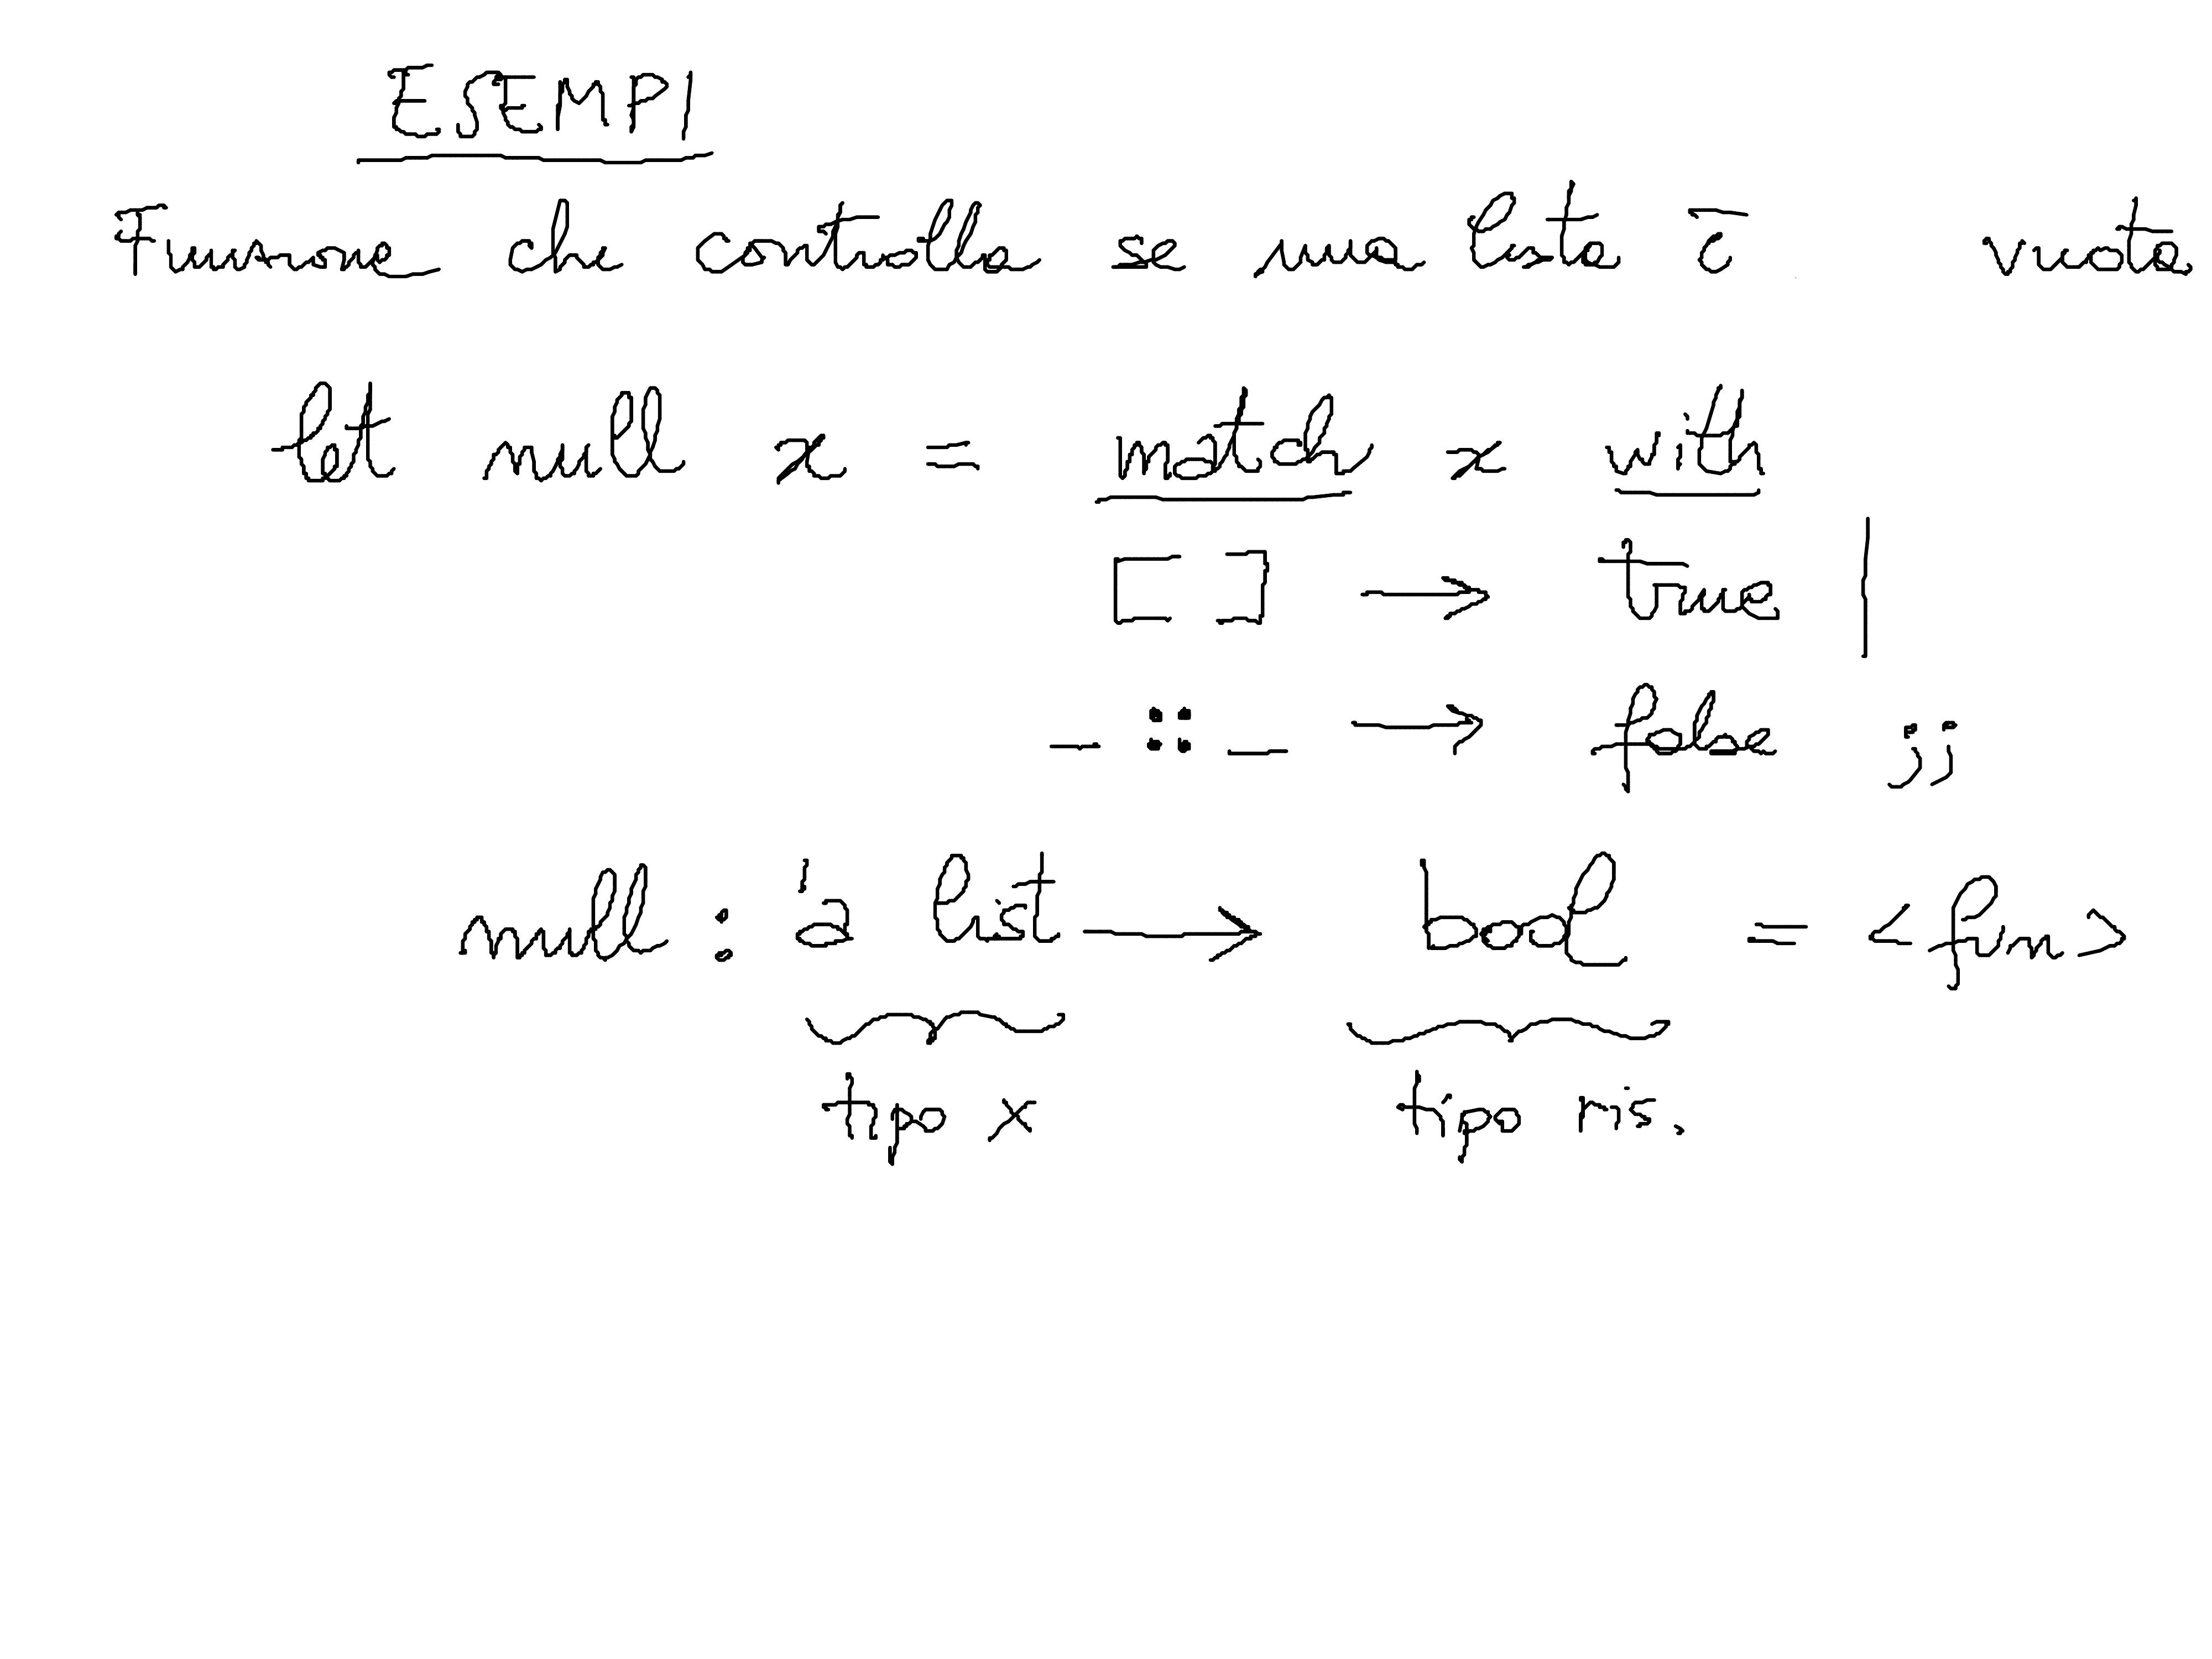 ESEMPI
Funzione che controlla se una lista è vuota
let null x = match x with
[ ] → true |
_ :: _ → false ;;
null : 'a list → bool = <fun>
tipo x tipo ris.